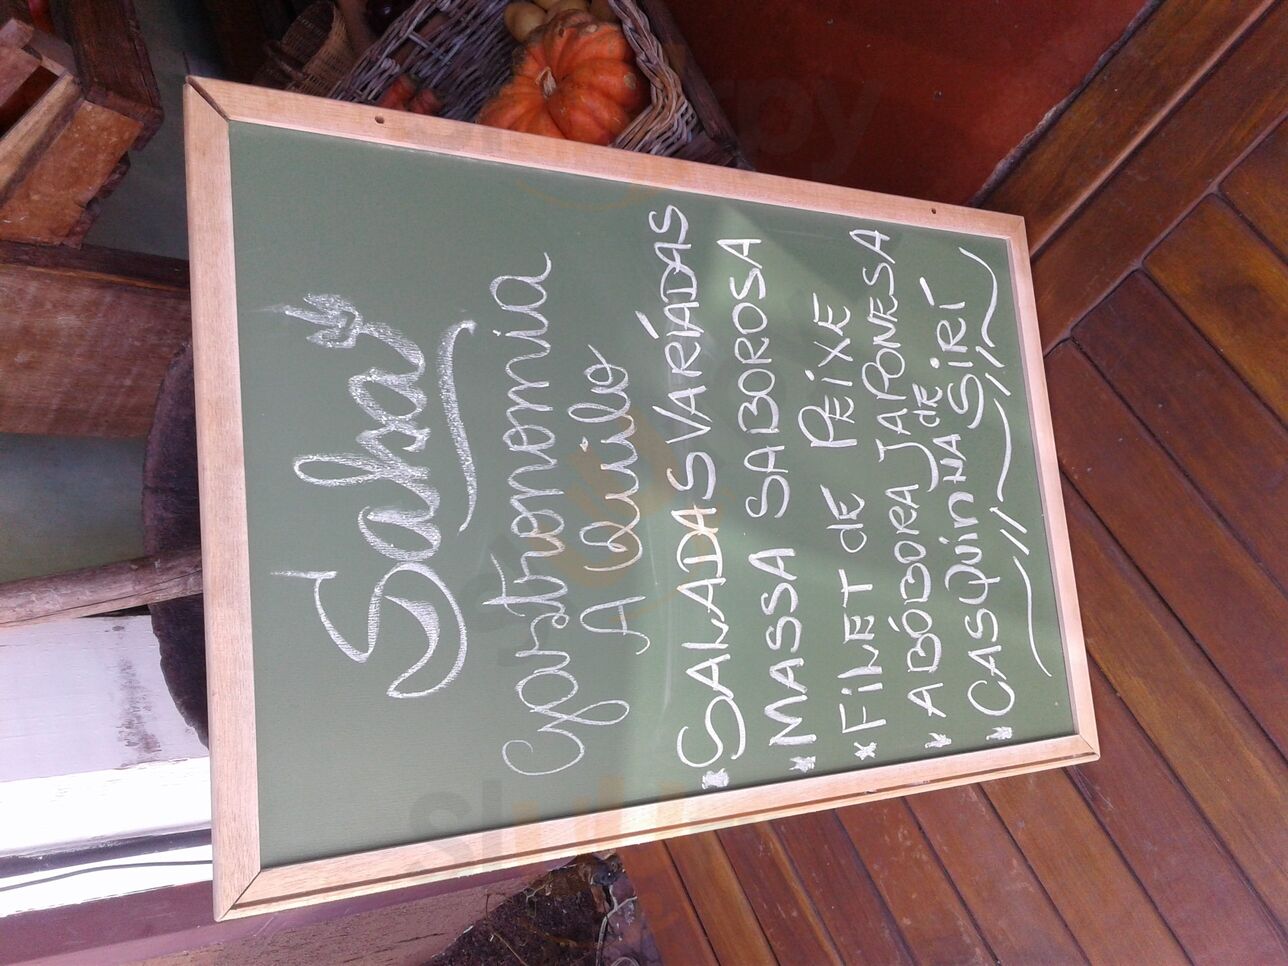 Sabay
Gastronomia
A Quilo
* SALADAS VARÍADAS
* MASSA SABOROSA
* FILET de PEIXE
* ABÓBORA JAPONESA
* CASQUINHA de SIRÍ